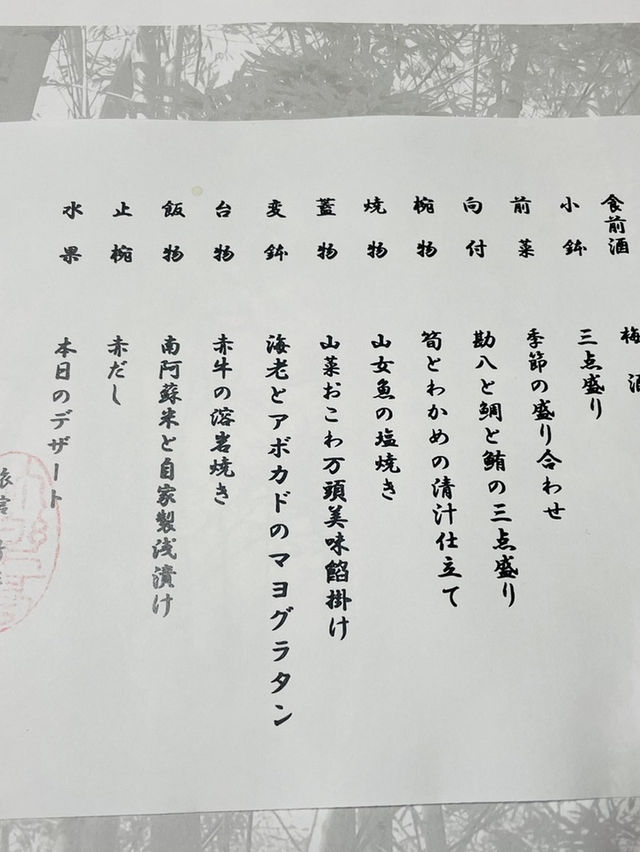 食前酒 梅酒
小鉢 三点盛り
前菜 季節の盛り合わせ
向付 勘八と鯛と鮪の三点盛り
椀物 筍とわかめの清汁仕立て
焼物 山女魚の塩焼き
蓋物 山菜おこわ万頭美味餡掛け
変鉢 海老とアボカドのマヨグラタン
台物 赤牛の溶岩焼き
飯物 南阿蘇米と自家製浅漬け
止椀 赤だし
水果 本日のデザート